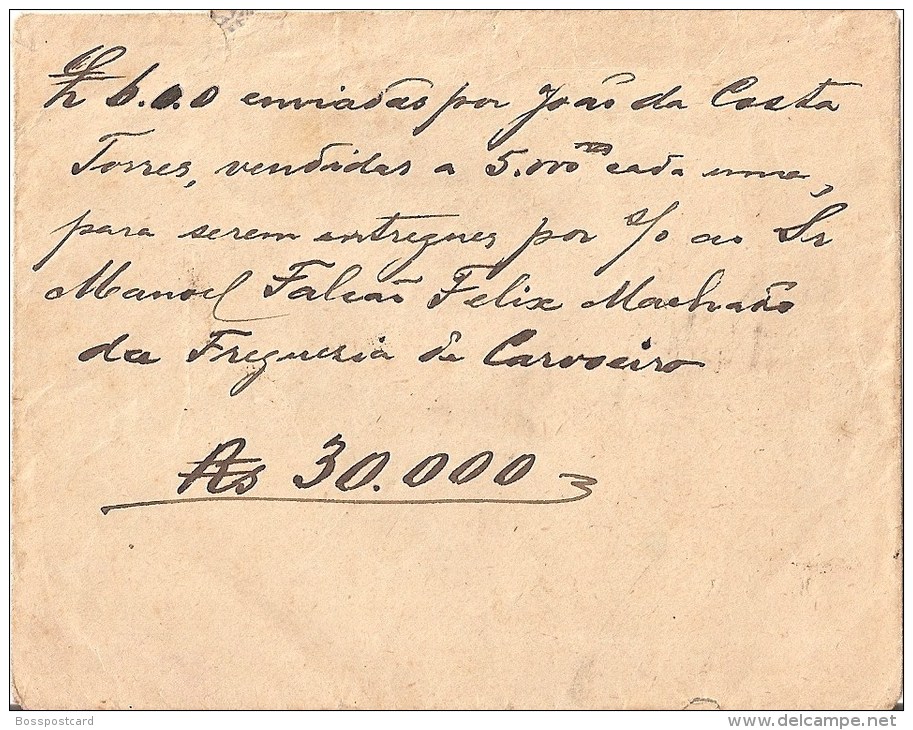 £ 6.0.0 enviadas por João da Costa
Torres, vendidas a 5.000 rs cada uma,
para serem entregues por s/o ao Sr
Manoel Falcão Felix Machado
da Freguesia de Carvoeiro
Rs 30.000
Bosspostcard
www.delcampe.net